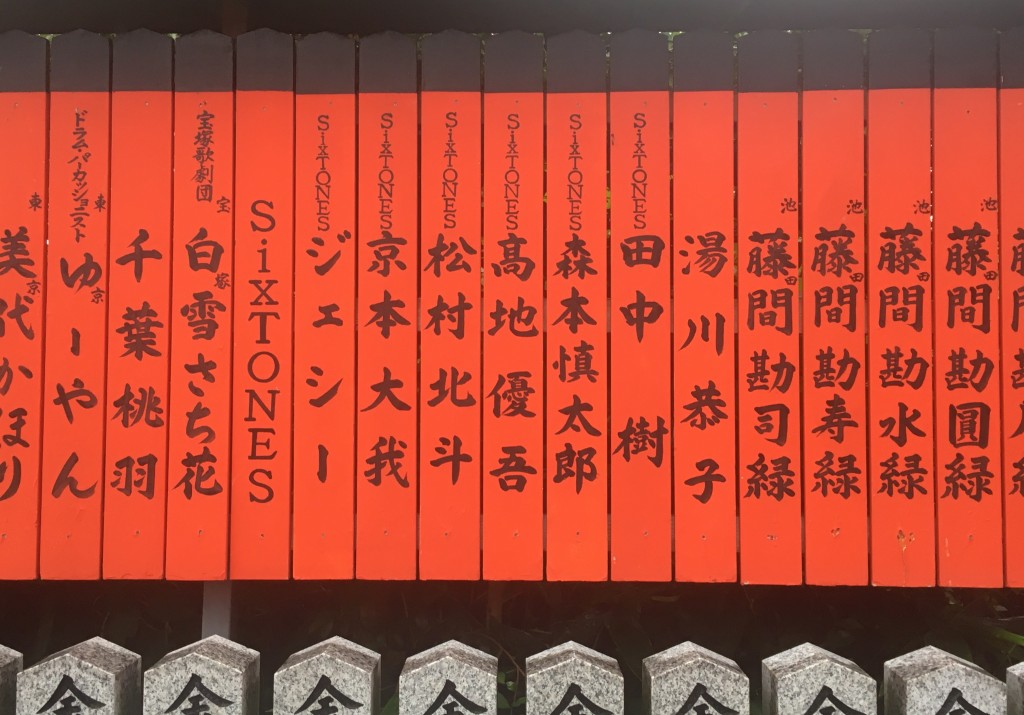 東京
美代かほり
ドラム・パーカッショニスト
東京
ゆーやん
千葉桃羽
宝塚歌劇団
宝塚
白雪さち花
SixTONES
SixTONES
ジェシー
SixTONES
京本大我
SixTONES
松村北斗
SixTONES
髙地優吾
SixTONES
森本慎太郎
SixTONES
田中樹
湯川恭子
池田
藤間勘司緑
池田
藤間勘寿緑
池田
藤間勘水緑
池田
藤間勘圓緑
金
金
金
金
金
金
金
金